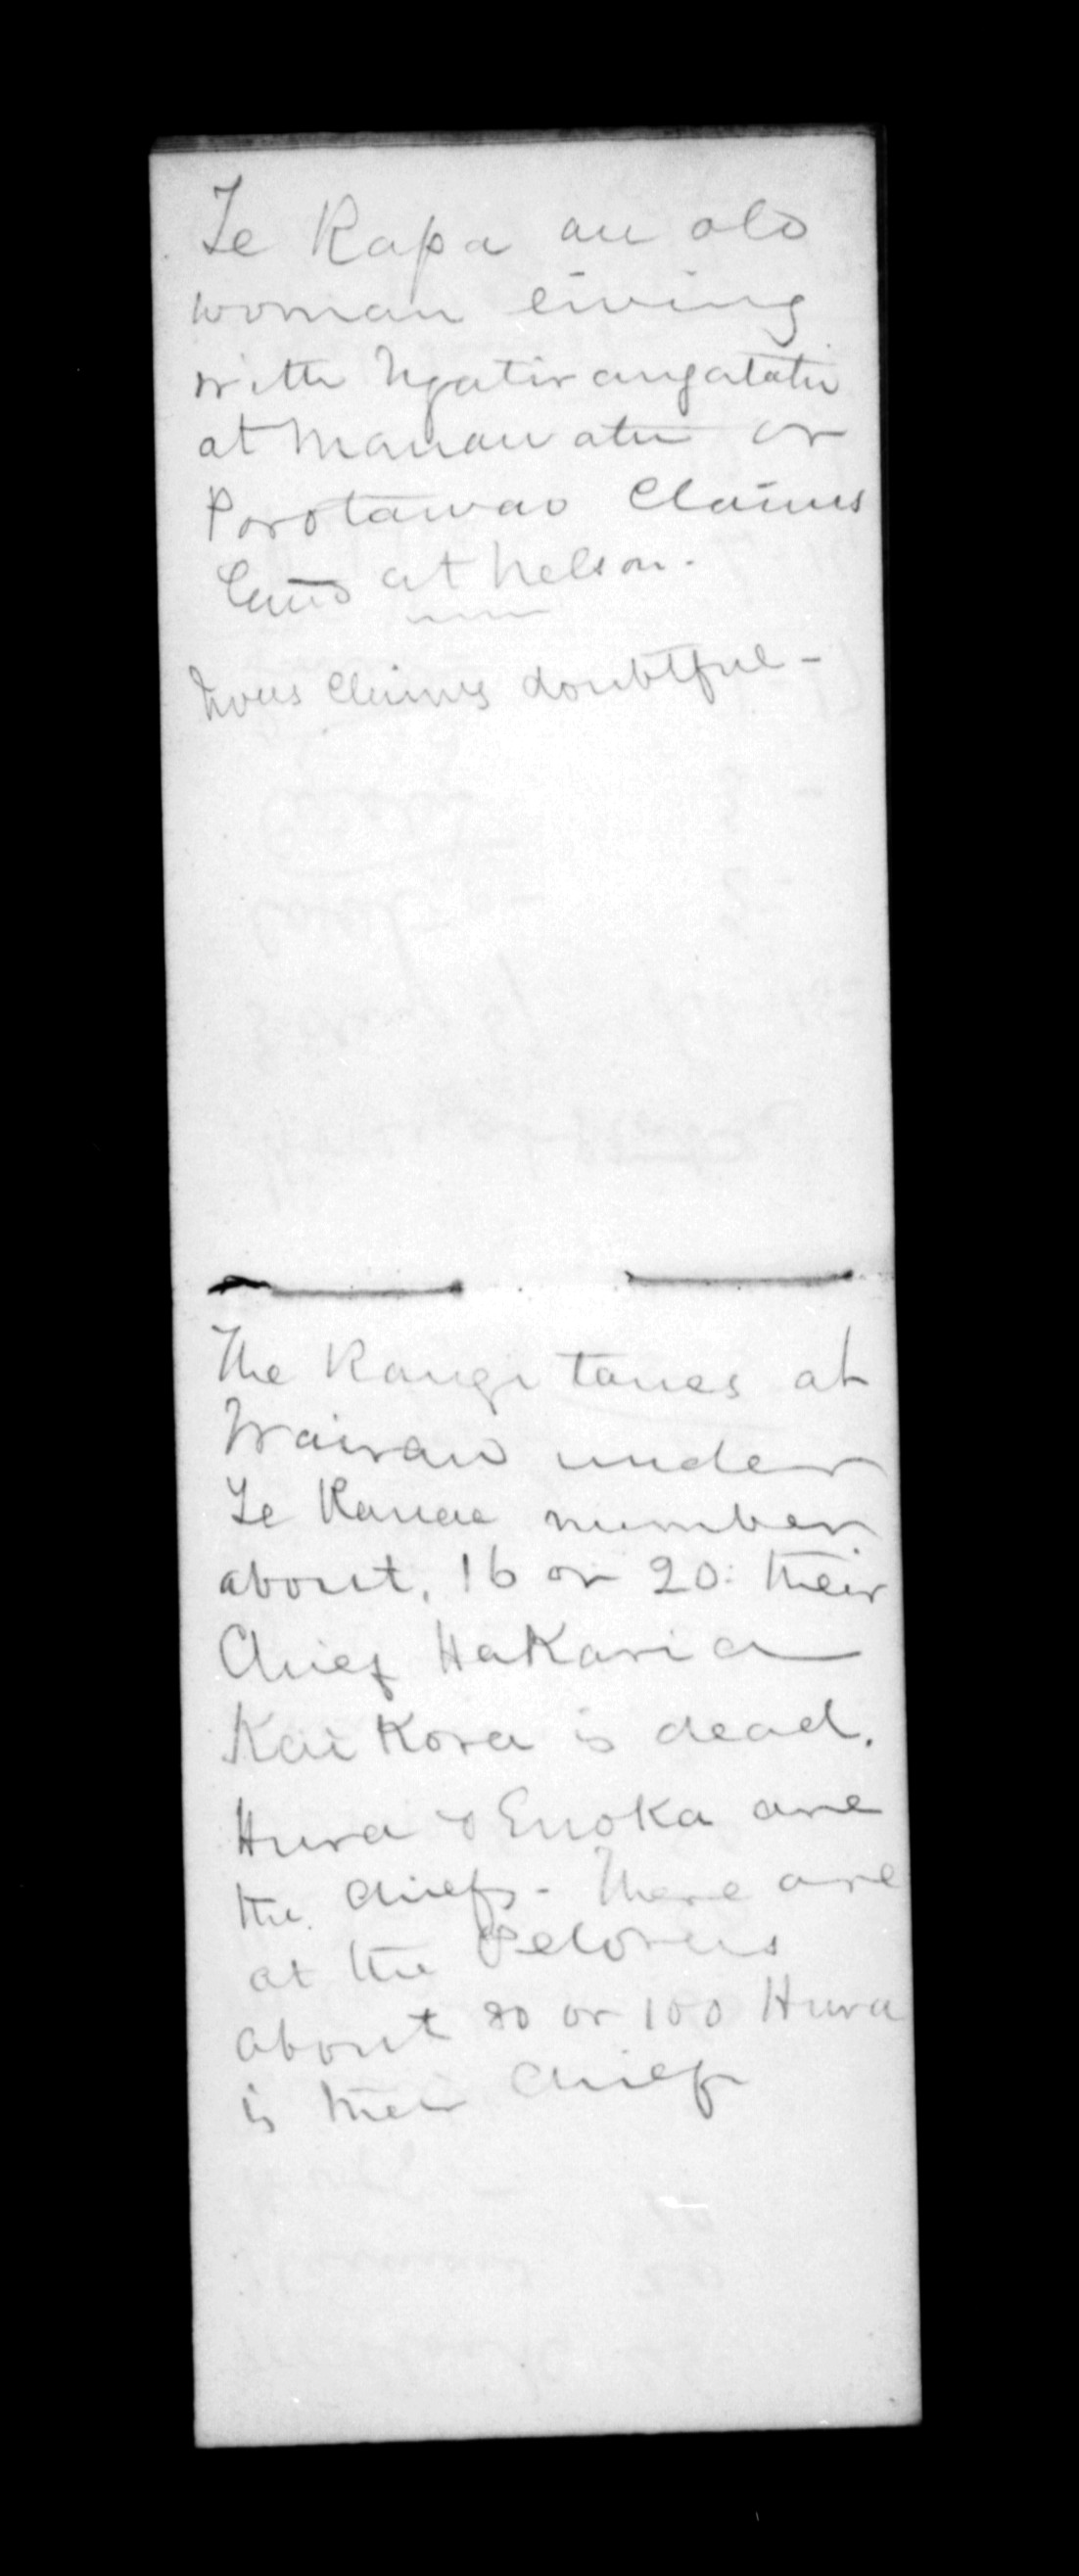 Te Rapa an old
woman living
with Ngatirangatahi
at Manawatu or
Porotawao Claims
Land at Nelson.
claims doubtful -
The Rangitanes at
Wairau under
Te Kanae number
about, 16 or 20: their
Chief Hakaria
Kaikora is dead.
Hura & Enoka are
the chiefs - There are
at the Pelorus
about 80 or 100 Hura
is their chief